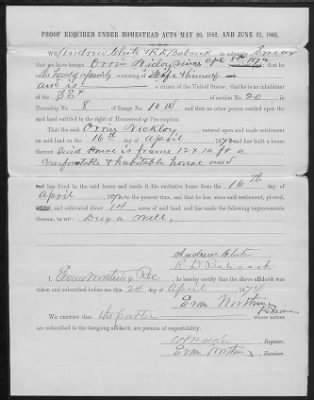 PROOF REQUIRED UNDER HOMESTEAD ACTS MAY 20, 1862, AND JUNE 21, 1866.
Andrew Clute & R D Babcock, do solemnly swear
that we have known since
the head of family, consisting of wife & himself and
and is a citizen of the United States; that he is an inhabitant
of the SE¼ of section No. 20
Township No. 8 of Range No. 10 W and that no other person resided upon the
said land entitled to the right of Homestead or Pre-emption.
That the said entered upon and made settlement
on said land on the 16th day of April, 18 and has built a
house thereon Said House is frame 12 x 14 ft a
comfortable & habitable house and
has lived in the said house and made it his exclusive home from the 16th day of
April 1872 to the present time, and that he has, since said settlement, plowed,
and cultivated about 14 acres of said land, and has made the following improvements
thereon, to wit: Dug a well,
Andrew Clute
R D Babcock
I, do hereby certify that the above affidavit was
taken and subscribed before me this 24 day of April 1874
We certify that whose names
are subscribed to the foregoing affidavit, are persons of respectability.
Register.
Receiver.